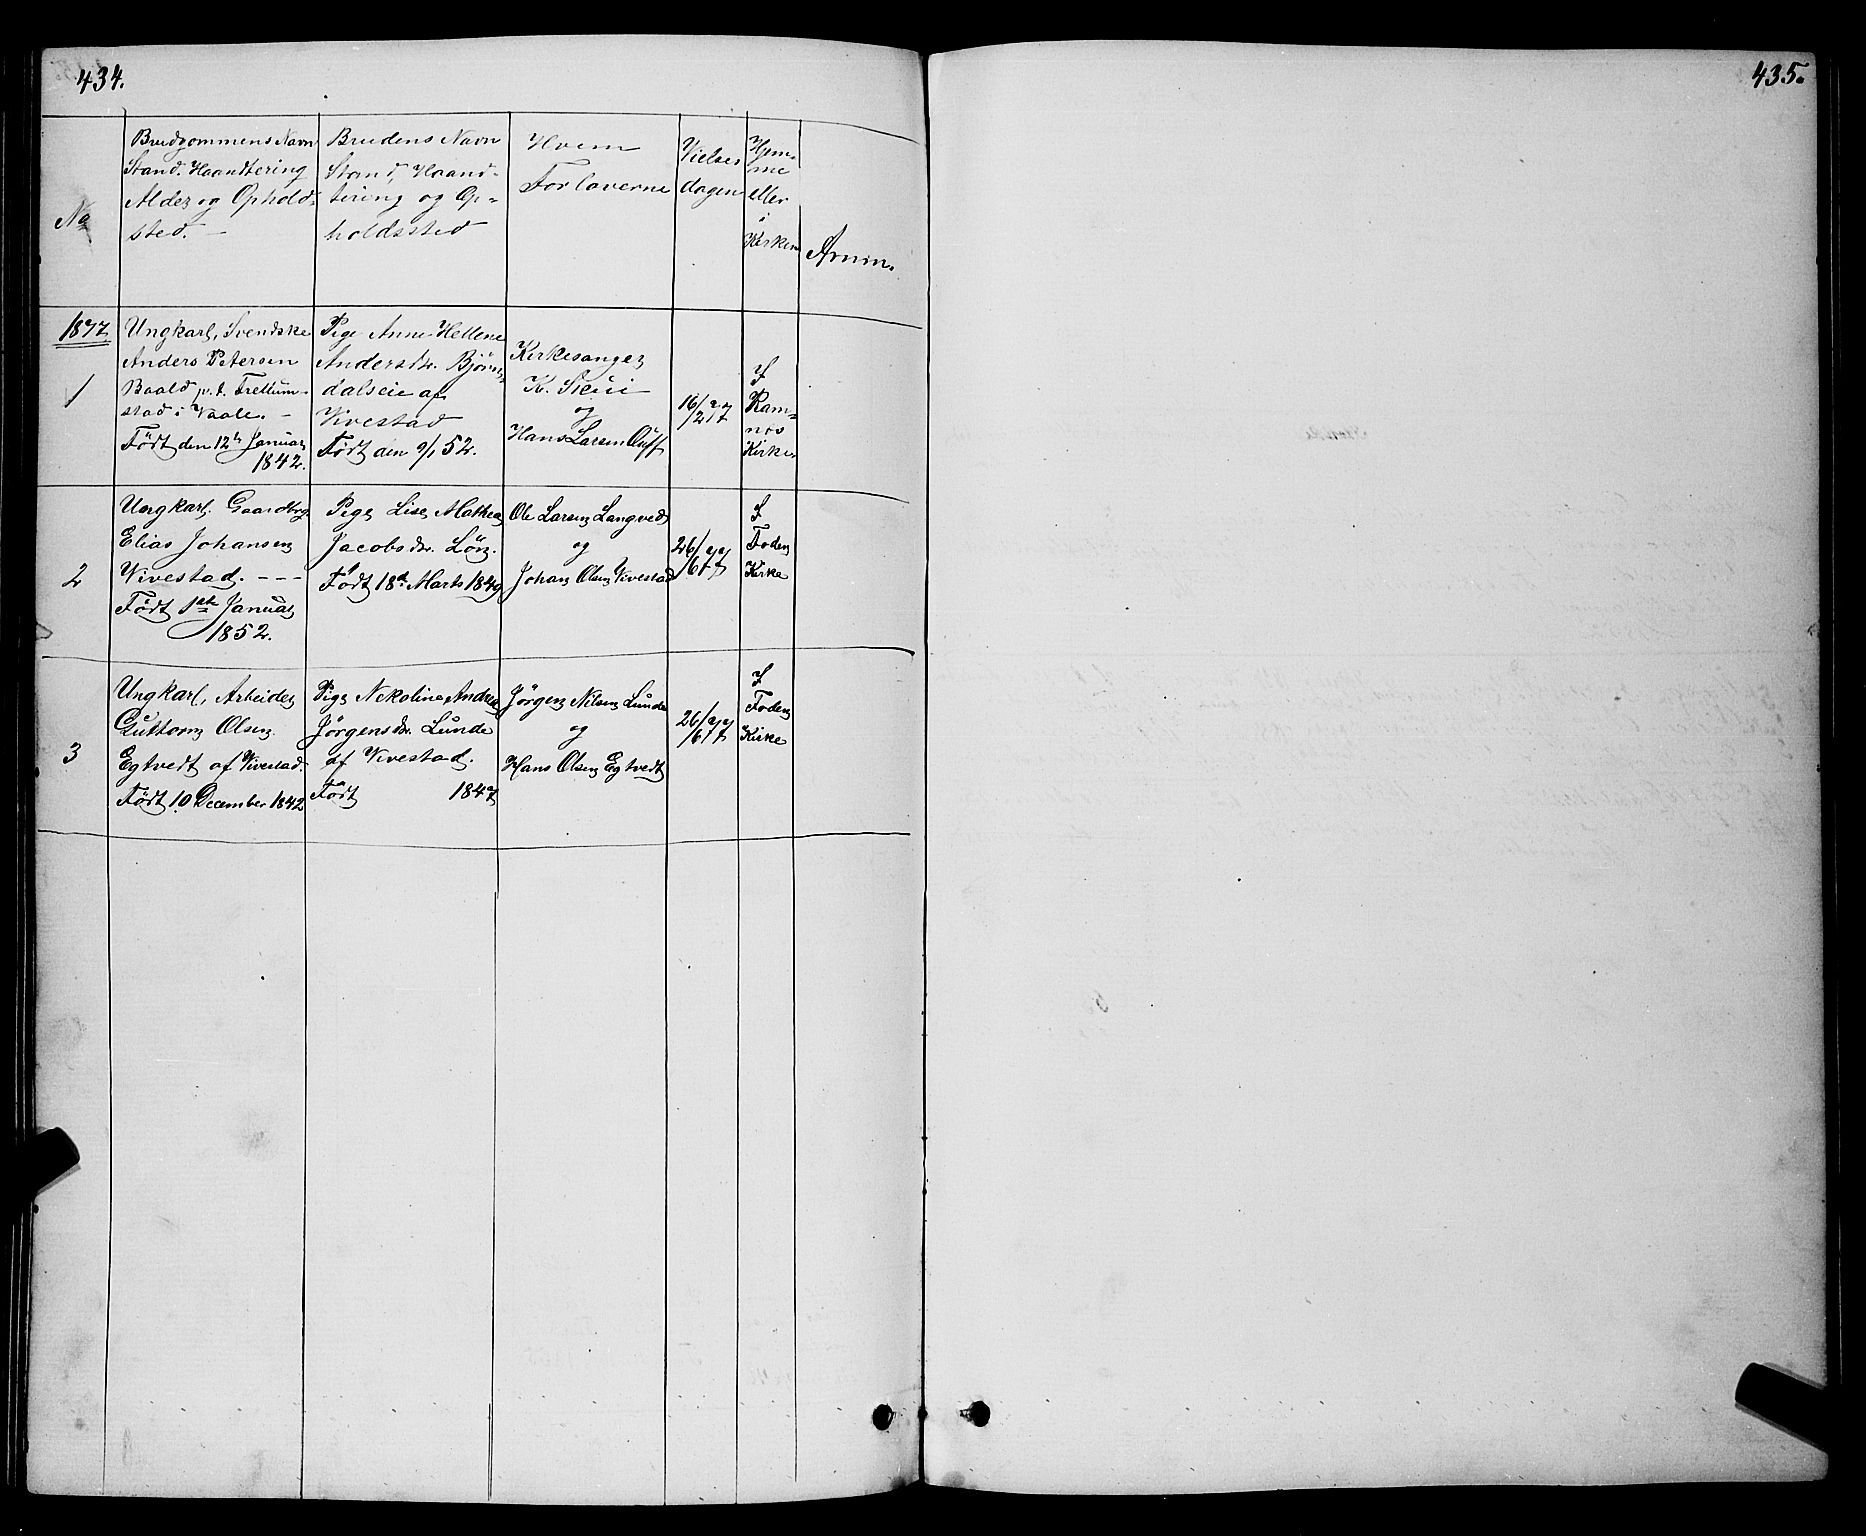 434.
435.
No
Brudgommens Navn
Stand. Haandtering
Alder og Ophold-
sted. -
Brudens Navn
Stand, Haand-
tering og Op-
holdssted
Hvem
Forloverne
Vielses
dagen
Hjem-
me
eller
i
Kirken
Anm.
1877
1
Ungkarl, Svenske
Anders Petersen
Baald p.t. Trellum-
stad i Vaale. -
Født den 12te Januar
1842.
Pige Anne Hellene
Andersdr. Bjørn-
dalseie af
Vivestad
Født den 9/1 52.
Kirkesanger
K.
og
Hans Larsen
16/2 77
I
Ram-
nos
Kirke.
2
Ungkarl. Gaardbrg.
Elias Johansen
Vivestad. - - -
Født 1ste Januar
1852.
Pige Lise Mathea
Jacobsdr. Lön.
Født 18de Marts 1849
Ole Larsen Langved
og
Johan Olsen Vivestad
26/6 77
I
Foden
Kirke
3
Ungkarl, Arbeider
Guttorm Olsen
Egtvedt af Vivestad.
Født 10 December 1842
Pige Nekoline Andrea
Jörgensdr. Lunde
af Vivestad.
Født 1847
Jörgen Nilsen Lunde
og
Hans Olsen Egtvedt
26/6 77
I
Foden
Kirke